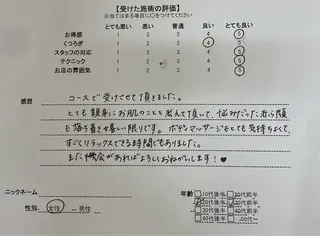 【受けた施術の評価】
※当てはまる項目に○をつけてください
とても悪い 悪い 普通 良い とても良い
お得感 1 2 3 4 5
くつろぎ 1 2 3 4 5
スタッフの対応 1 2 3 4 5
テクニック 1 2 3 4 5
お店の雰囲気 1 2 3 4 5
感想
コースで受けさせて頂きました。
とても親身にお肌のことを考えて頂いて、悩みだった
も落ち着き嬉しい限りです。ボディマッサージもとても気持ちよくて、
すごくリラックスできる時間でもありました。
また機会があればよろしくおねがいします!♥
ニックネーム
性別 女性 ・ 男性
年齢 □10代後半 □20代前半
□20代後半 □30代前半
□30代後半 □40代前半
□40代後半 □50代~